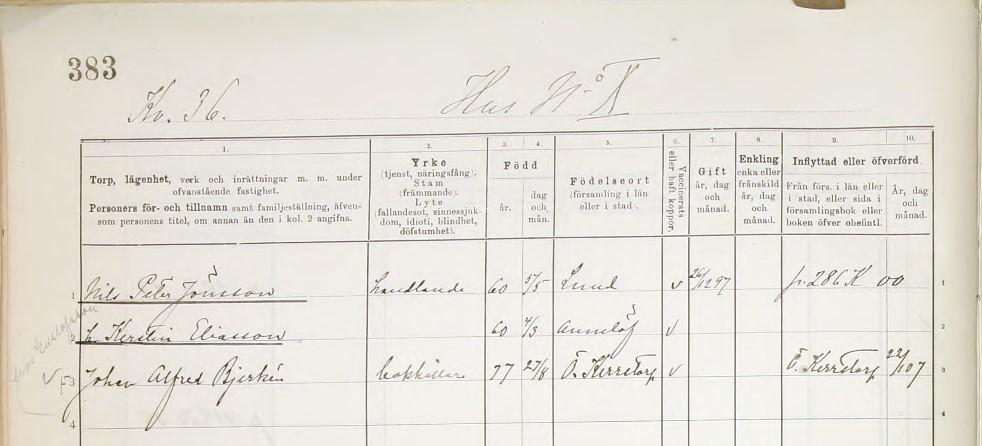 383
Kv. 36.
Hus No X
1.
2.
3.
4.
5.
6.
7.
8.
9.
10.
Torp, lägenhet, verk och inrättningar m. m. under
ofvanstående fastighet.
Personers för- och tillnamn samt familjeställning, äfven-
som personens titel, om annan än den i kol. 2 angifna.
Yrke
(tjenst, näringsfång).
Stam
(främmande).
Lyte
(fallandesot, sinnessjuk-
dom, idioti, blindhet,
döfstumhet).
Född
år.
dag
och
mån.
Födelseort
(församling i län
eller i stad).
Vaccinerats
eller haft koppor.
Gift
år, dag
och
månad.
Enkling
enka eller
frånskild
år, dag
och
månad.
Inflyttad eller öfverförd.
Från förs. i län eller
i stad, eller sida i
församlingsbok eller
boken öfver obefintl.
År, dag
och
månad.
1 Nils Peter Jönsson handlande 60 5/5 Lund v 26/12 97 fr. 286 K 00 1
2 h. Kerstin Eliasson 60 4/3 Annelöf v 2
3 Johan Alfred Bjerkén 77 27/8 Ö. Kerrstorp v Ö. Kerrstorp 22/10 07 3
4 4